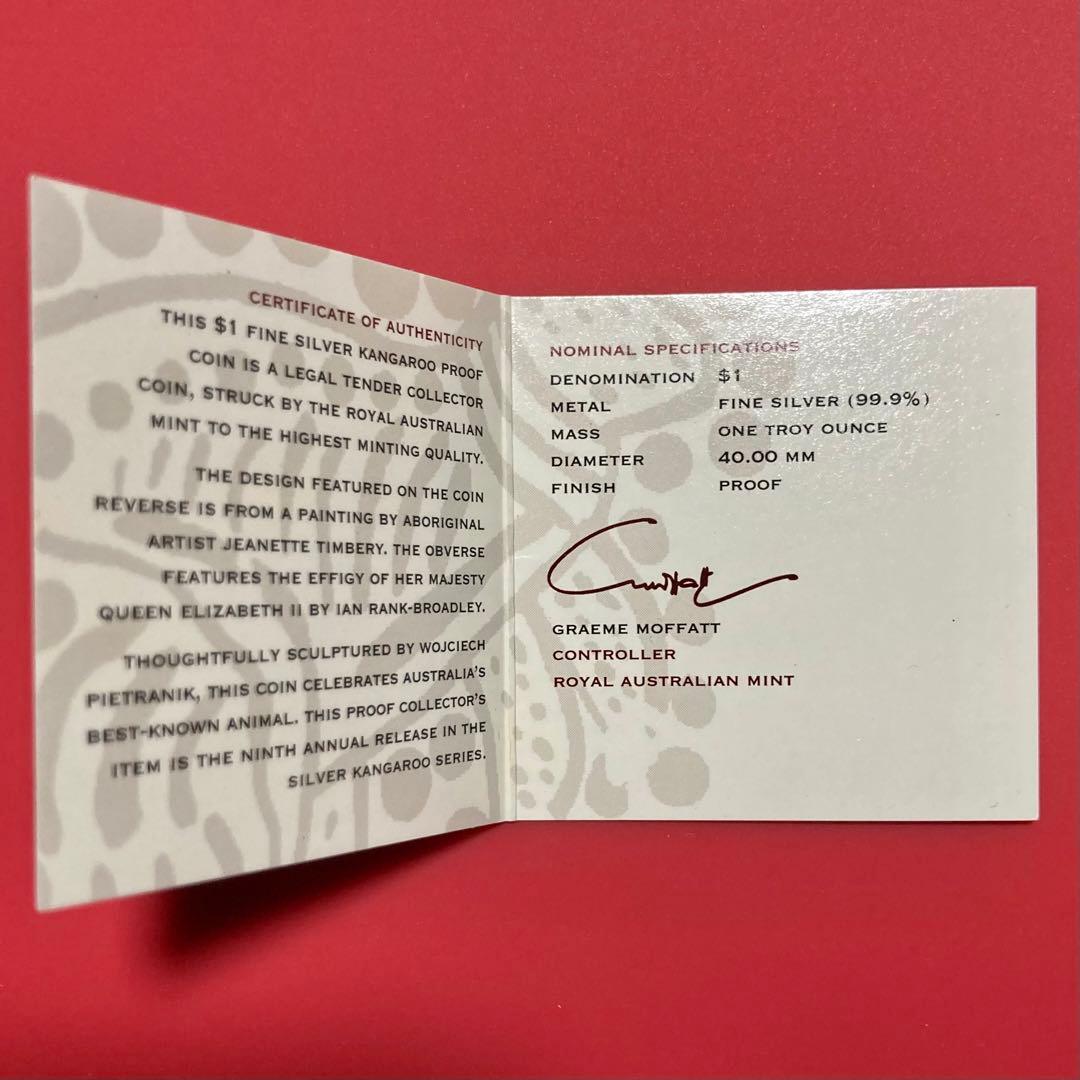 CERTIFICATE OF AUTHENTICITY
THIS $1 FINE SILVER KANGAROO PROOF
COIN IS A LEGAL TENDER COLLECTOR
COIN, STRUCK BY THE ROYAL AUSTRALIAN
MINT TO THE HIGHEST MINTING QUALITY.
THE DESIGN FEATURED ON THE COIN
REVERSE IS FROM A PAINTING BY ABORIGINAL
ARTIST JEANETTE TIMBERY. THE OBVERSE
FEATURES THE EFFIGY OF HER MAJESTY
QUEEN ELIZABETH II BY IAN RANK-BROADLEY.
THOUGHTFULLY SCULPTURED BY WOJCIECH
PIETRANIK, THIS COIN CELEBRATES AUSTRALIA'S
BEST-KNOWN ANIMAL. THIS PROOF COLLECTOR'S
ITEM IS THE NINTH ANNUAL RELEASE IN THE
SILVER KANGAROO SERIES.
NOMINAL SPECIFICATIONS
DENOMINATION $1
METAL FINE SILVER (99.9%)
MASS ONE TROY OUNCE
DIAMETER 40.00 MM
FINISH PROOF
GRAEME MOFFATT
CONTROLLER
ROYAL AUSTRALIAN MINT